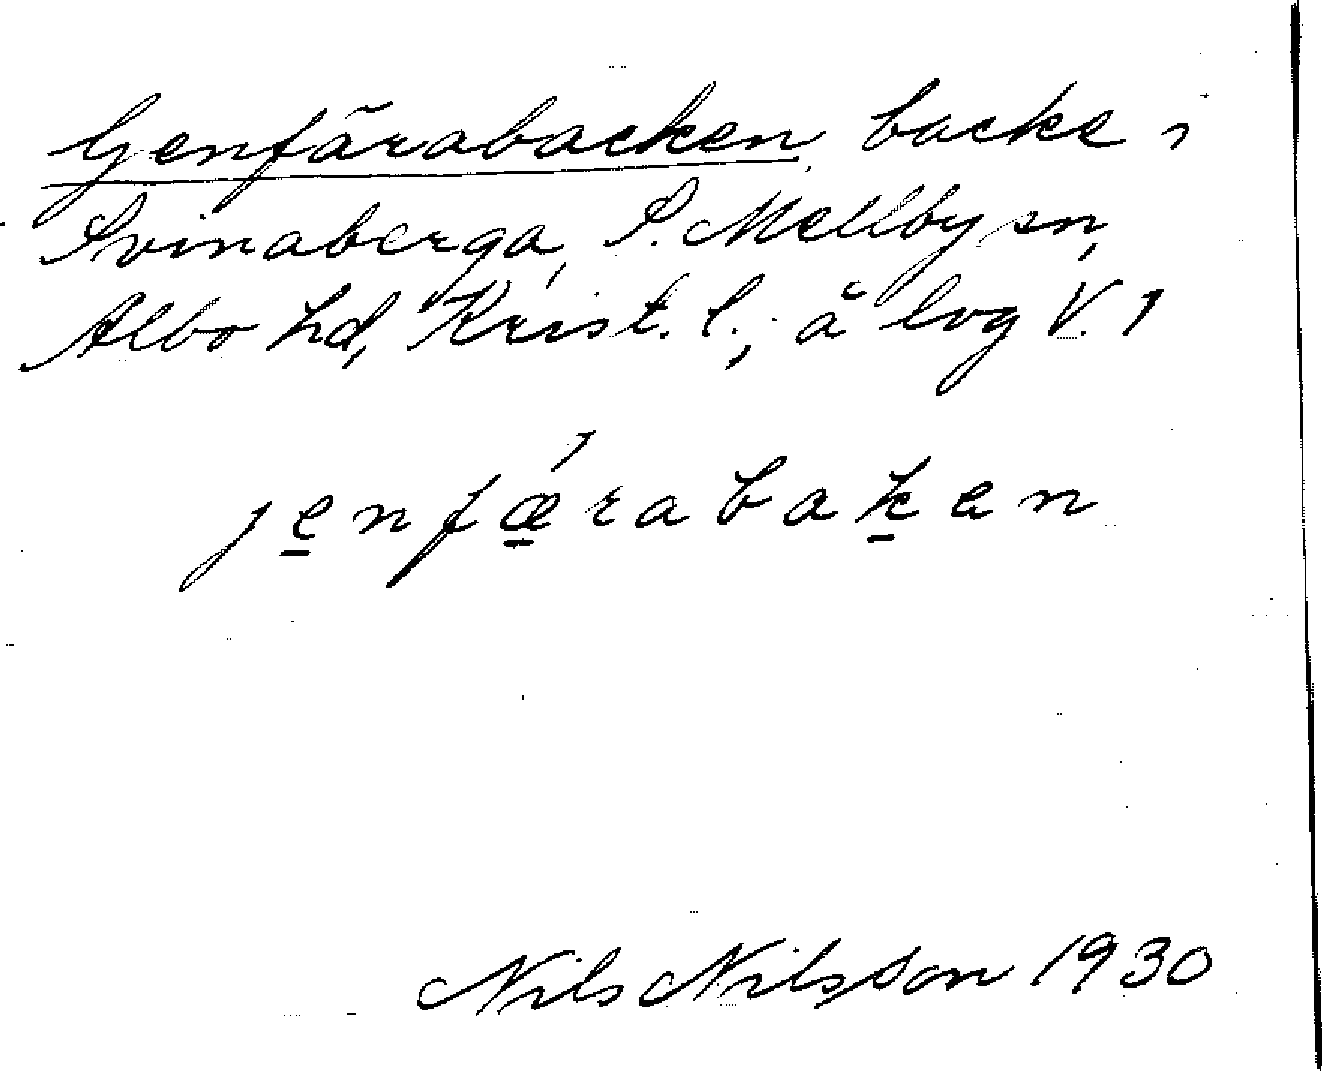 Genfärabacken, backe i
Svinaberga, S. Mellby sn,
Albo hd, Krist. l.; å lvg V. 1
jenfǽrabaken
Nils Nilsson 1930